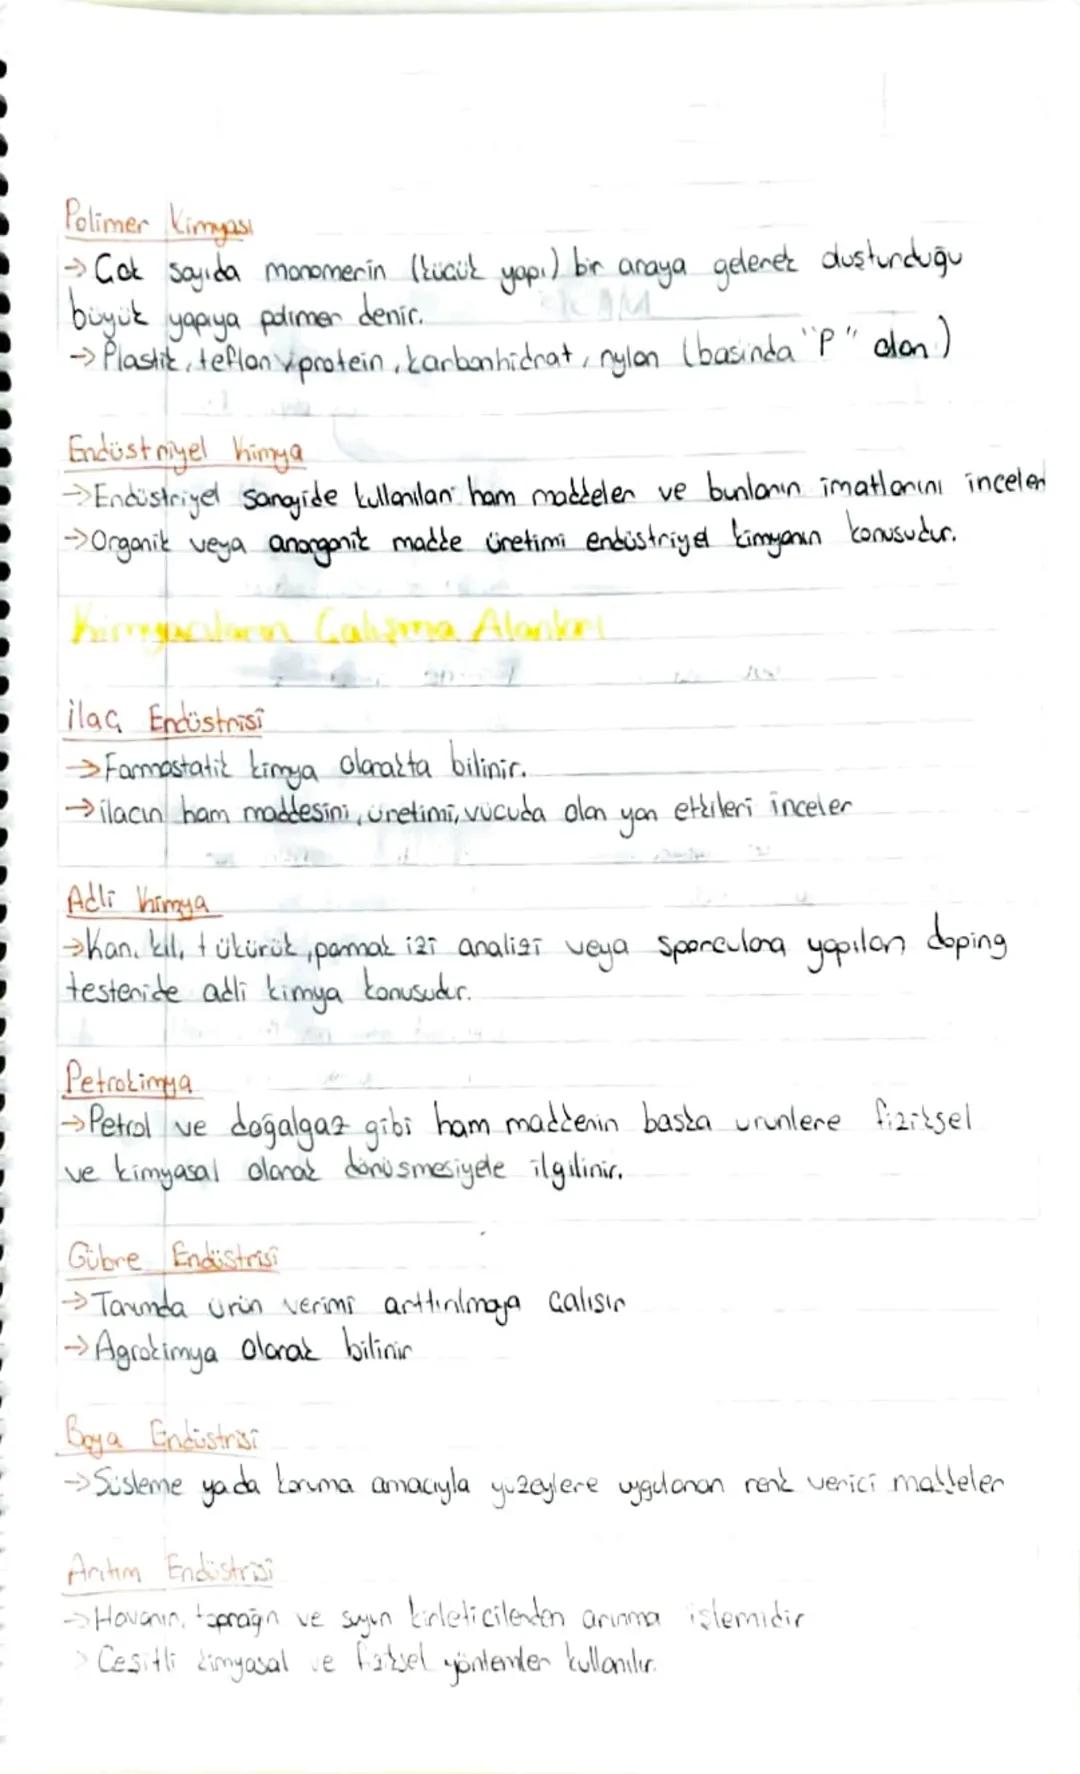 Polimer Kimyası
→ Çok sayıda monomerin (küçük yapı) bir araya gelerek oluşturduğu
büyük yapıya polimer denir.
→ Plastik, teflon, protein, karbonhidrat, nylon (başında "P" olan)
Endüstriyel Kimya
→ Endüstriyel sanayide kullanılan ham maddeler ve bunların imatlarını inceler
→ Organik veya anorganik madde üretimi endüstriyel kimyanın konusudur.
Kimyacıların Çalışma Alanları
İlaç Endüstrisi
→ Farmostatik kimya olarakta bilinir.
→ ilacın ham maddesini, üretimi, vücuda olan yan etkileri inceler
Adli Kimya
→ Kan, kıl, tükürük, parmak izi analizi veya sporculara yapılan doping
testeride adli kimya konusudur.
Petrokimya
→ Petrol ve doğalgaz gibi ham maddenin baska urunlere fiziksel
ve kimyasal olarak dönüsmesiyele ilgilinir.
Gübre Endüstrisi
→ Tarımda ürün verimi arttırılmaya calısır
→ Agrokimya olarak bilinir
Boya Endüstrisi
→ Süsleme yada koruma amacıyla yüzeylere uygulanan renk verici maddeler
Arıtım Endüstrisi
→ Havanın, toprağın ve suyun kirleticilerden arınma işlemidir
→ Cesitli kimyasal ve fiziksel yöntemler kullanılır.